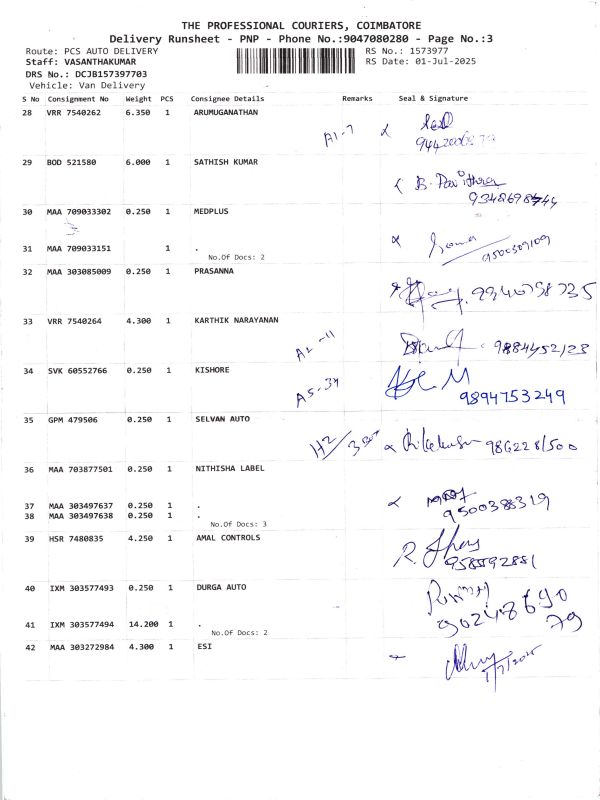 THE PROFESSIONAL COURIERS, COIMBATORE
Delivery Runsheet - PNP - Phone No.:9047080280 - Page No.:3
Route: PCS AUTO DELIVERY RS No.: 1573977
Staff: VASANTHAKUMAR RS Date: 01-Jul-2025
DRS No.: DCJB157397703
Vehicle: Van Delivery
S No Consignment No Weight PCS Consignee Details Remarks Seal & Signature
28 VRR 7540262 6.350 1 ARUMUGANATHAN
A1-7
29 BOD 521580 6.000 1 SATHISH KUMAR
B. Pavithra
30 MAA 709033302 0.250 1 MEDPLUS
3
31 MAA 709033151 1 .
No.Of Docs: 2
9500509109
32 MAA 303085009 0.250 1 PRASANNA
9940758735
33 VRR 7540264 4.300 1 KARTHIK NARAYANAN
A2-11
9884452123
34 SVK 60552766 0.250 1 KISHORE
A5-34
9894753249
35 GPM 479506 0.250 1 SELVAN AUTO
9862281500
36 MAA 703877501 0.250 1 NITHISHA LABEL
37 MAA 303497637 0.250 1 .
9500388319
38 MAA 303497638 0.250 1 .
No.Of Docs: 3
39 HSR 7480835 4.250 1 AMAL CONTROLS
40 IXM 303577493 0.250 1 DURGA AUTO
90248690
79
41 IXM 303577494 14.200 1 .
No.Of Docs: 2
42 MAA 303272984 4.300 1 ESI
1/7/2025